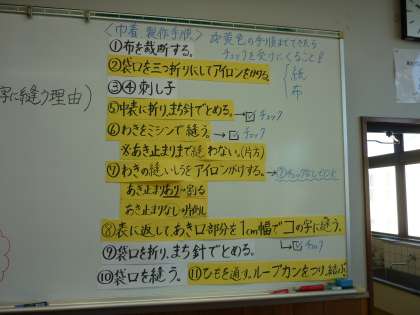 〈巾着 製作手順〉 ※黄色の手順まできたら
チェックを受けにくること!
①布を裁断する。
②袋口を三つ折りにしてアイロンをかける。
紙
布
③④刺し子
字に縫う理由)
⑤中表に折り、まち針でとめる。→☑チェック
⑥わきをミシンで縫う。→☑チェック
※あき止まりまで縫わない。(片方)
⑦わきの縫いしろをアイロンがけする。
あき止まりあり→割る
あき止まりなし→片倒し
⑧表に返して、あき口部分を1cm幅でコの字に縫う。
⑨袋口を折り、まち針でとめる。 ↳☑チェック
⑩袋口を縫う。 ⑪ひもを通す。ループカンをつけ、結ぶ